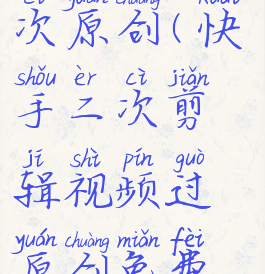 cì yuán chuàng kuài
次原创(快
shǒu èr cì jiǎn
手二次剪
jí shì pín guò
辑视频过
yuán chuàng miǎn fèi
原创免费